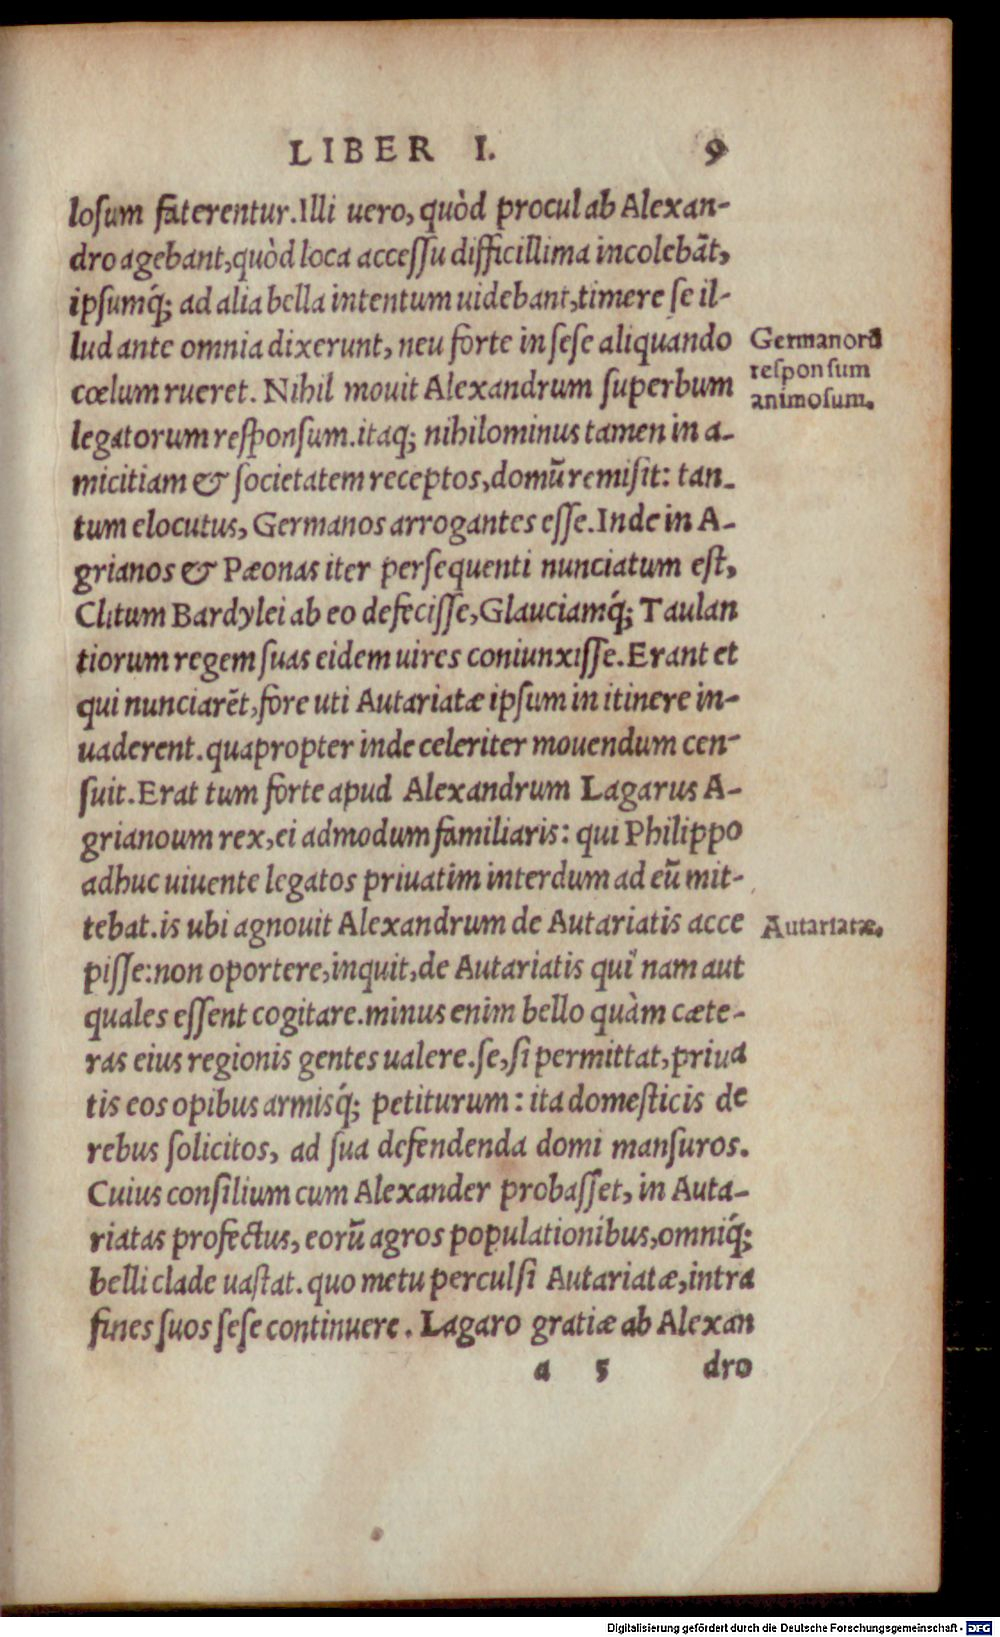 LIBER I. 9
losum faterentur. Illi uero, quòd procul ab Alexan-
dro agebant, quòd loca accessu difficillima incolebãt,
ipsumq́; ad alia bella intentum uidebant, timere se il-
lud ante omnia dixerunt, neu forte in sese aliquando
cœlum rueret. Nihil mouit Alexandrum superbum
legatorum responsum. itaq; nihilominus tamen in a-
micitiam & societatem receptos, domũ remisit: tan-
tum elocutus, Germanos arrogantes esse. Inde in A-
grianos & Pæonas iter persequenti nunciatum est,
Clitum Bardylei ab eo defecisse, Glauciamq́; Taulan
tiorum regem suas eidem uires coniunxisse. Erant et
qui nunciarẽt, fore uti Autariatæ ipsum in itinere in-
uaderent. quapropter inde celeriter mouendum cen-
suit. Erat tum forte apud Alexandrum Lagarus A-
grianoum rex, ei admodum familiaris: qui Philippo
adhuc uiuente legatos priuatim interdum ad eũ mit-
tebat. is ubi agnouit Alexandrum de Autariatis acce
pisse: non oportere, inquit, de Autariatis qui nam aut
quales essent cogitare. minus enim bello quàm cæte-
ras eius regionis gentes ualere. se, si permittat, priua
tis eos opibus armisq́; petiturum: ita domesticis de
rebus solicitos, ad sua defendenda domi mansuros.
Cuius consilium cum Alexander probasset, in Auta-
riatas profectus, eorũ agros populationibus, omniq́;
belli clade uastat. quo metu perculsi Autariatæ, intra
fines suos sese continuere. Lagaro gratiæ ab Alexan
a 5 dro
Germanorũ
responsum
animosum.
Autariatæ.
Digitalisierung gefördert durch die Deutsche Forschungsgemeinschaft - DFG